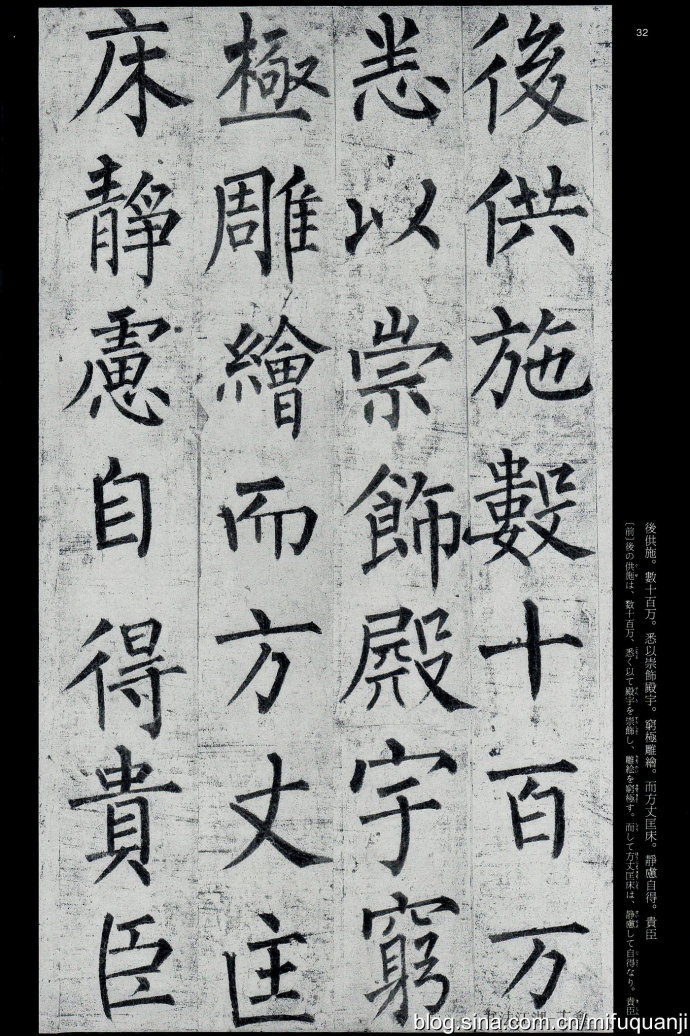 32
後供施數十百万
悉以崇飾殿宇窮
極雕繪而方丈匡
床靜慮自得貴臣
後供施。數十百万。悉以崇飾殿宇。窮極雕繪。而方丈匡床。靜慮自得。貴臣
〔前〕後の供施は、数十百万、悉く以て殿宇を崇飾し、雕絵を窮極す。而して方丈匡床は、静慮して自得なり。貴臣
blog.sina.com.cn/mifuquanji